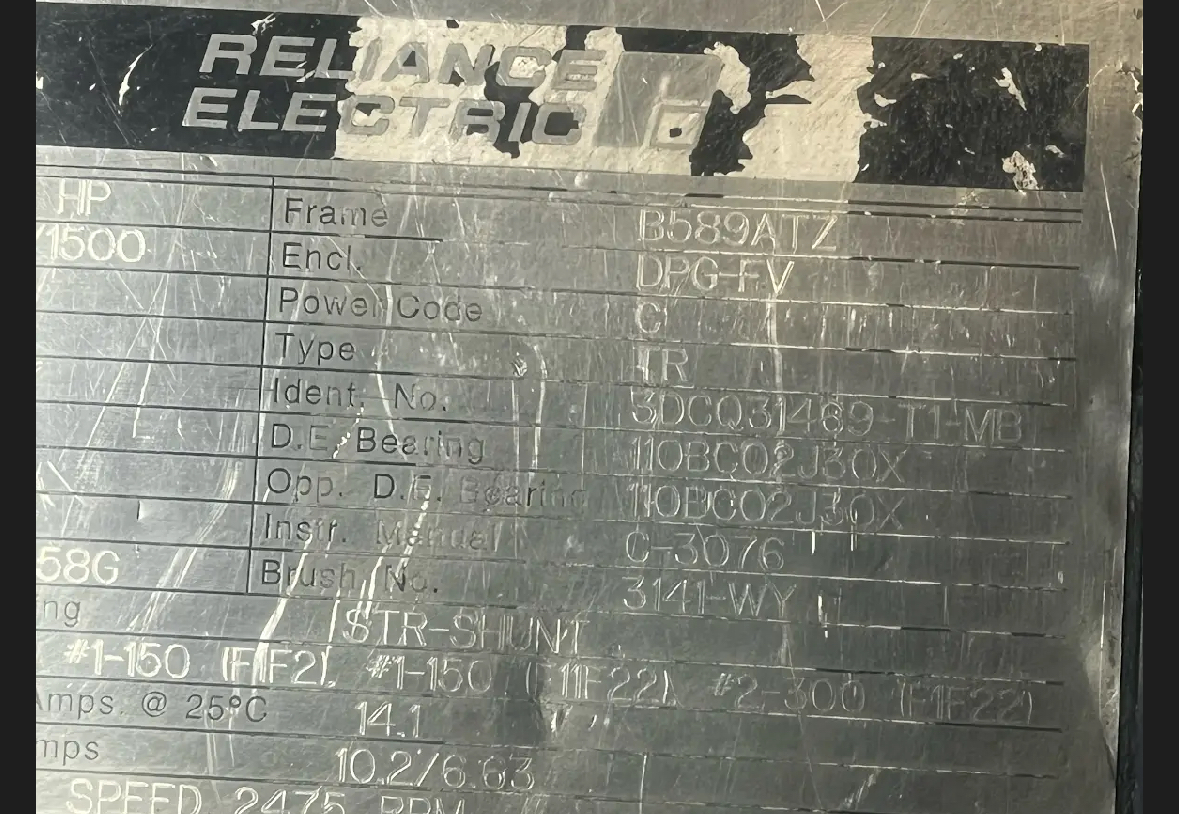 RELIANCE
ELECTRIC
HP Frame B589ATZ
/1500 Encl. DPG-FV
Power Code C
Type TR
Ident. No. 3DCQ31489-T1-MB
D.E. Bearing 110BC02J30X
Opp. D.E. Bearing 110BC02J30X
Instr. Manual C-3076
58G Brush No. 3141-WY
ng STR-SHUNT
#1-150 (F1F2), #1-150 (F11F22), #2-300 (F1F22)
Amps @ 25°C 14.1
mps 10.2/6.63
SPEED 2475 RPM